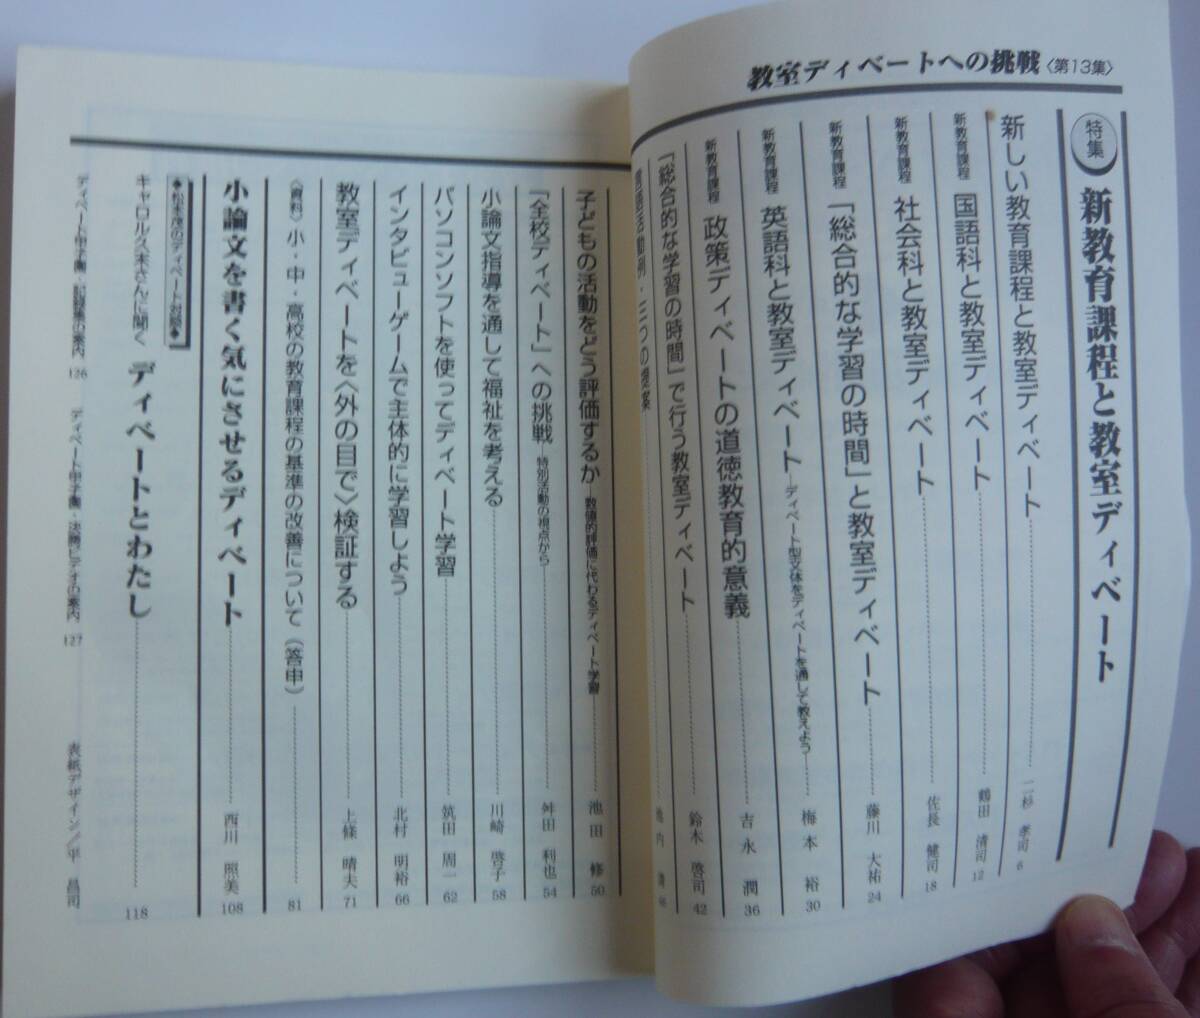 教室ディベートへの挑戦〈第13集〉
特集 新教育課程と教室ディベート
新しい教育課程と教室ディベート 二杉 孝司 6
新教育課程 国語科と教室ディベート 鶴田 清司 12
新教育課程 社会科と教室ディベート 佐長 健司 18
新教育課程 「総合的な学習の時間」と教室ディベート 藤川 大祐 24
新教育課程 英語科と教室ディベート―ディベート型文体をディベートを通して教えよう 梅本 裕 30
新教育課程 政策ディベートの道徳教育的意義 吉永 潤 36
「総合的な学習の時間」で行う教室ディベート 鈴木 啓司 42
言語活動例・三つの提案 池内 清 46
子どもの活動をどう評価するか 数値的評価に代わるディベート学習 池田 修 50
「全校ディベート」への挑戦―特別活動の視点から 舛田 利也 54
小論文指導を通して福祉を考える 川崎 啓子 58
パソコンソフトを使ってディベート学習 筑田 周一 62
インタビューゲームで主体的に学習しよう 北村 明裕 66
教室ディベートを〈外の目で〉検証する 上條 晴夫 71
〈資料〉小・中・高校の教育課程の基準の改善について（答申） 81
小論文を書く気にさせるディベート 西川 照美 108
◆松本茂のディベート対談◆
キャロル久末さんに聞く ディベートとわたし 118
ディベート甲子園・記録集の案内 126
ディベート甲子園・決勝ビデオの案内 127
表紙デザイン／平 昌司